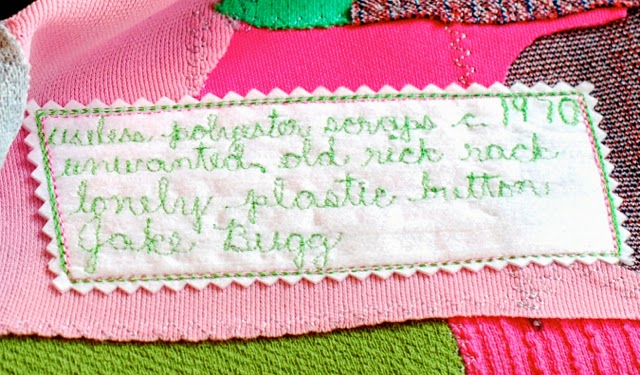 useless polyester scraps c. 1970
unwanted, old rick rack
lonely plastic button
Jake Bugg